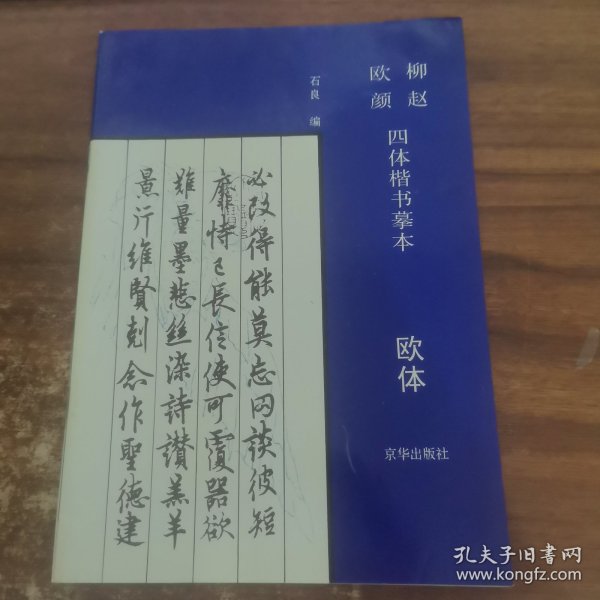 柳赵
欧颜
四体楷书摹本
欧体
石良 编
京华出版社
必改得能莫忘罔谈彼短
靡恃己長信使可覆器欲
難量墨悲絲染詩讃羔羊
景行維賢剋念作聖德建
孔夫子旧书网
www.kongfz.com